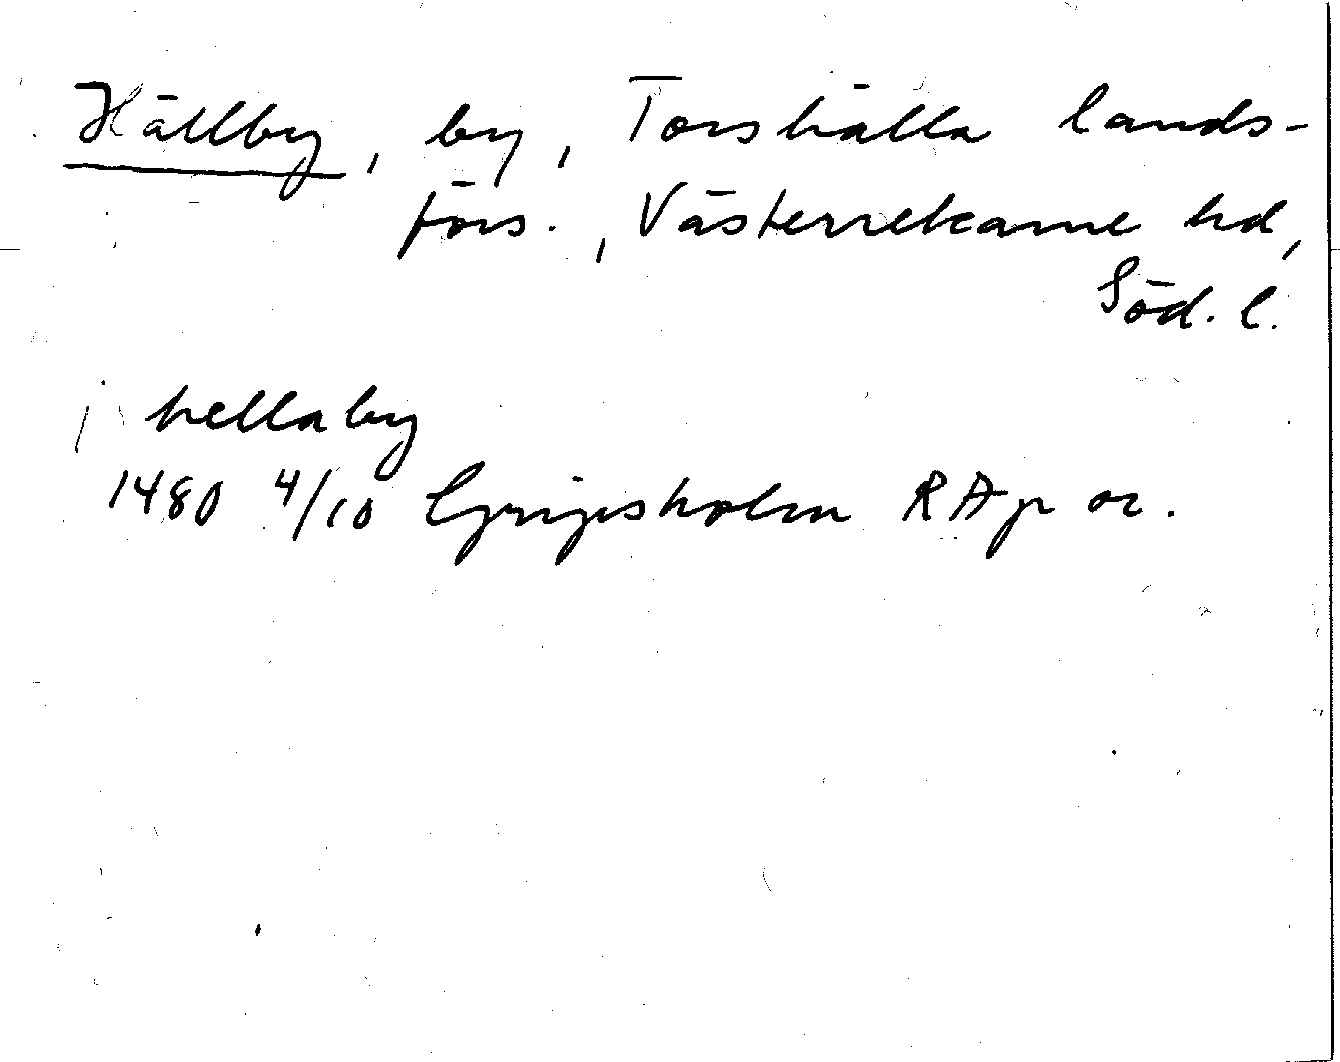 Hällby, by, Torshälla lands-
förs., Västerrekarne hd,
Söd. l.
j hellaby
1480 4/10 Gripsholm RAp or.